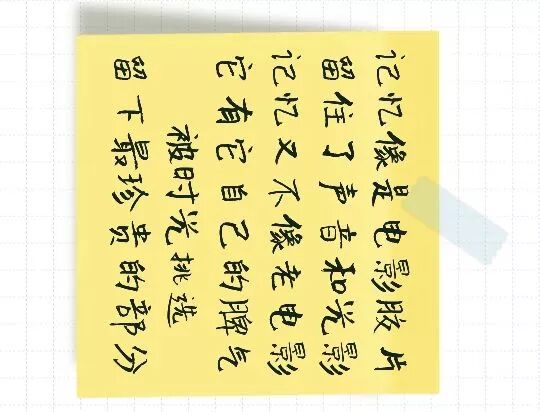 记忆像是电影胶片
留住了声音和光影
记忆又不像老电影
它有它自己的脾气
被时光挑选
留下最珍贵的部分